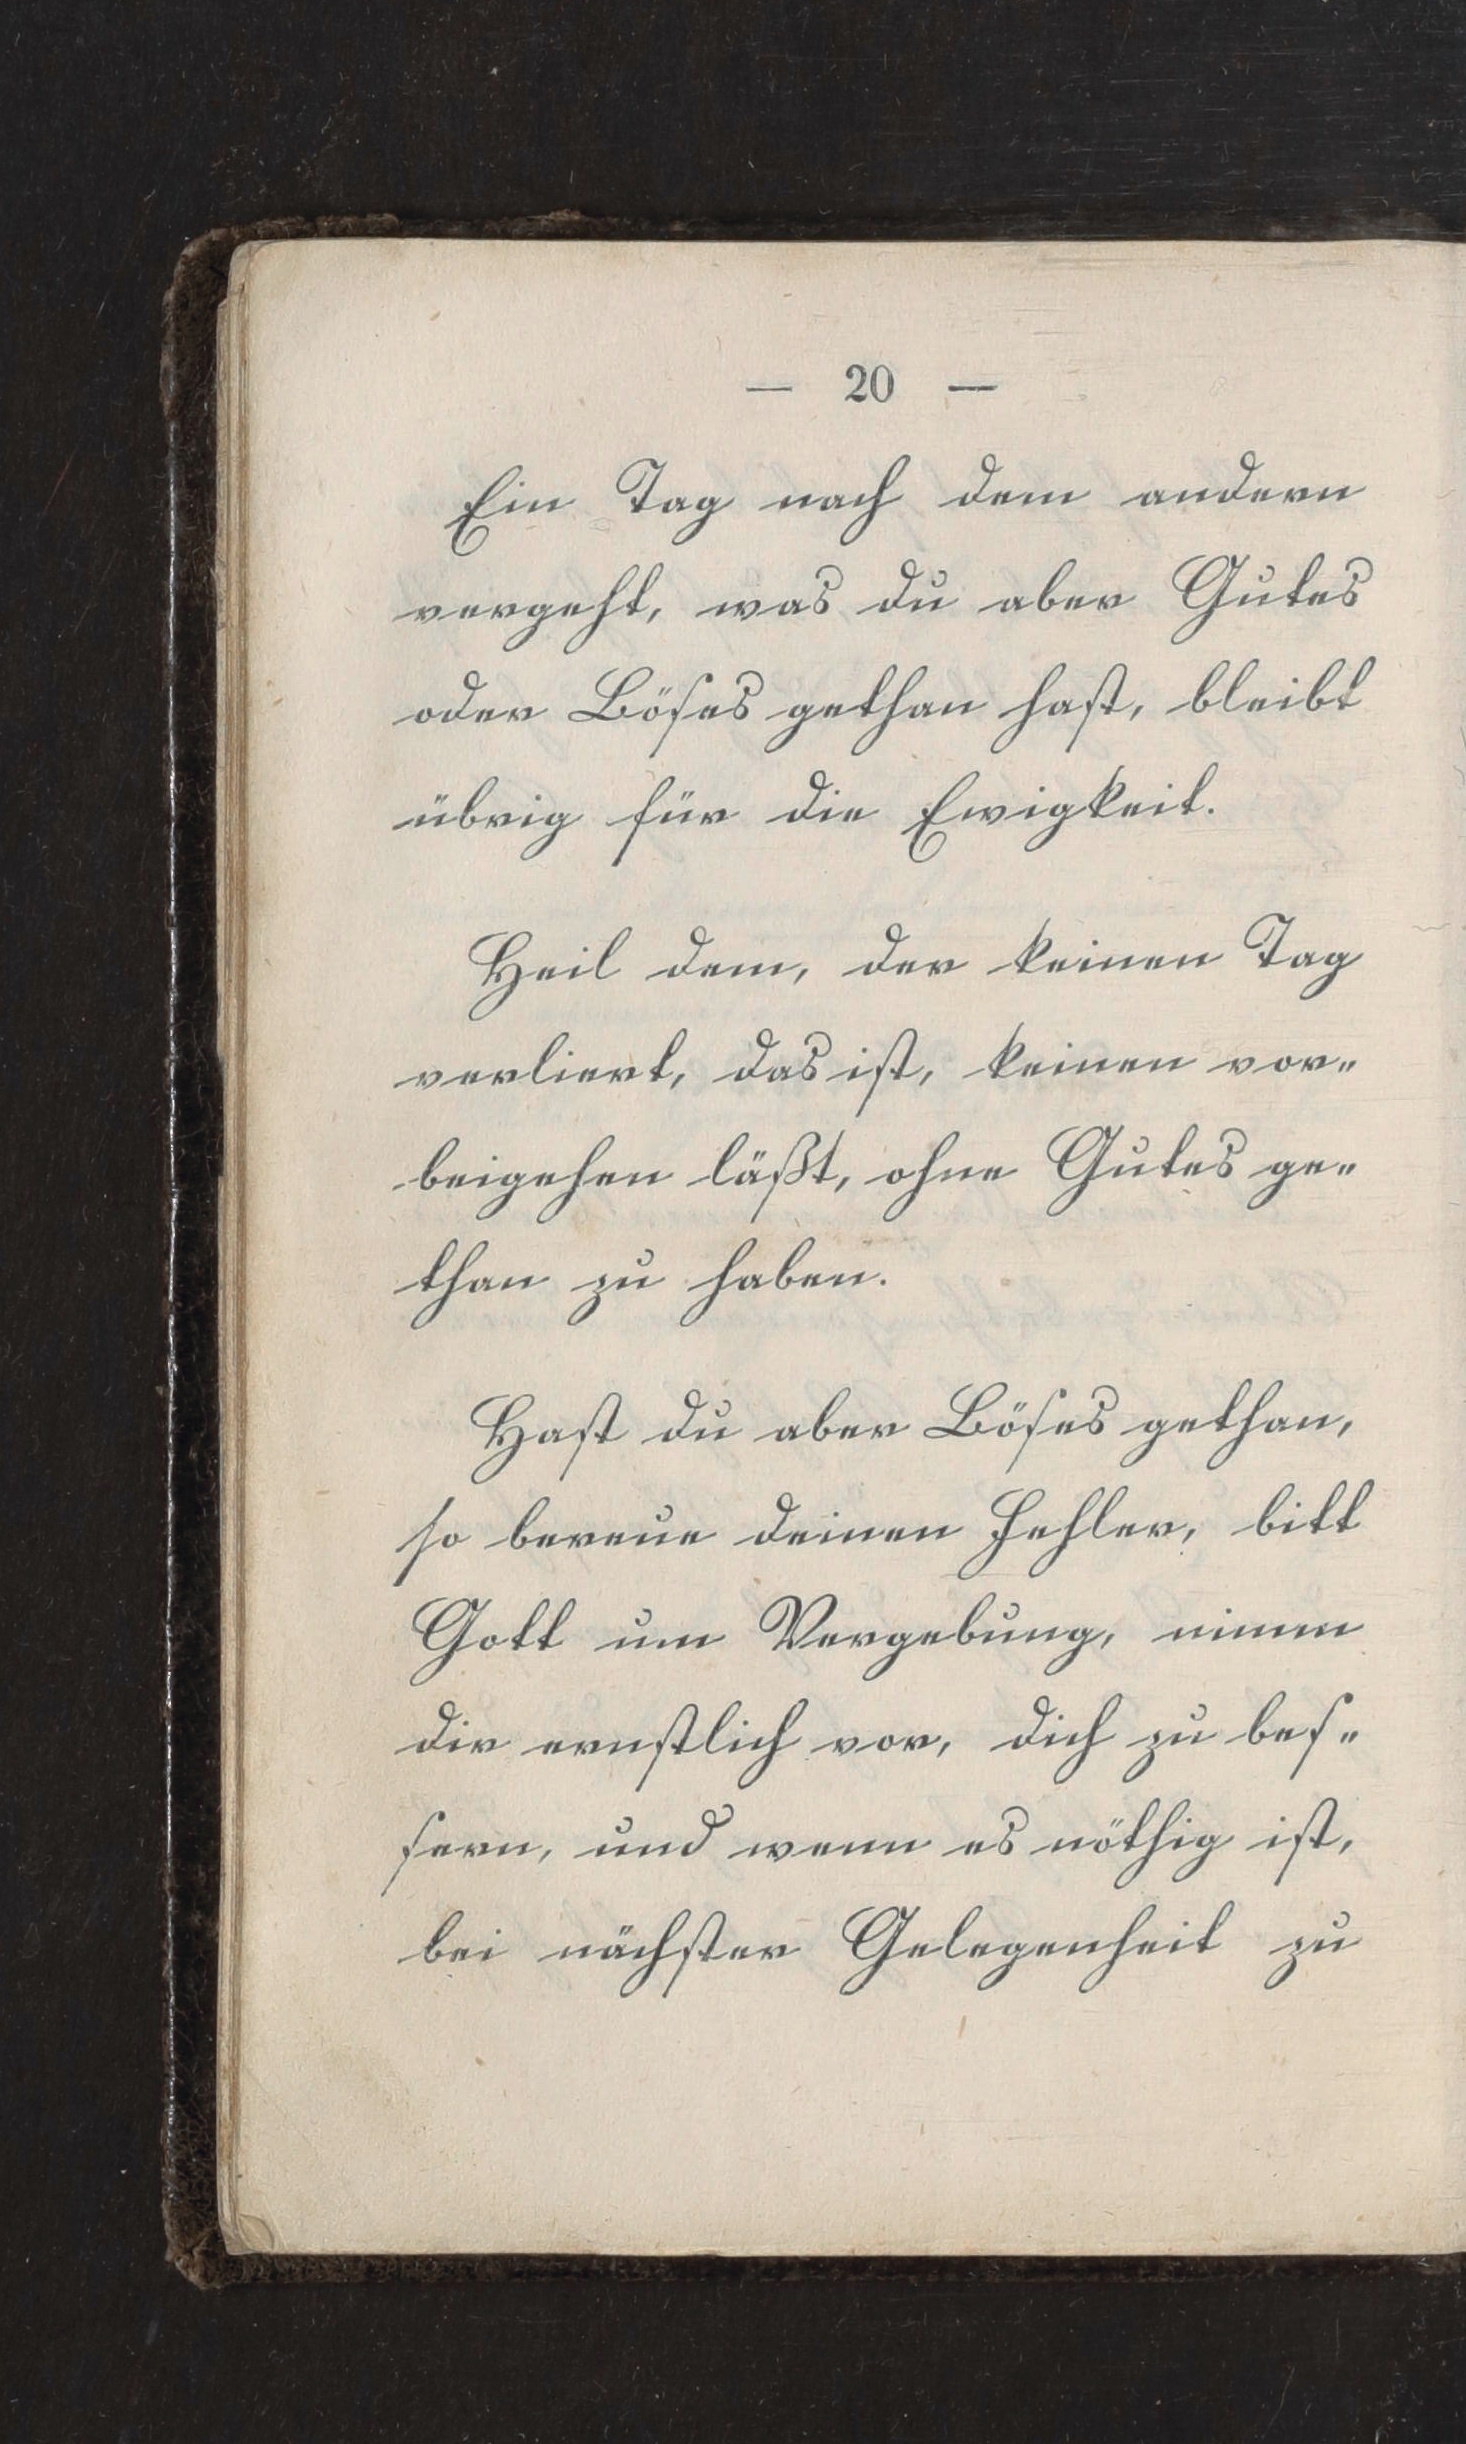 — 20 —
Ein Tag nach dem andern
vergeht, was du aber Gutes
oder Böses gethan hast, bleibt
übrig für die Ewigkeit.
Heil dem, der keinen Tag
verliert, das ist, keinen vor-
beigehen läßt, ohne Gutes ge-
than zu haben.
Hast du aber Böses gethan,
so bereue deinen Fehler, bitt
Gott um Vergebung, nimm
dir ernstlich vor, dich zu bes-
sern, und wenn es nöthig ist,
bei nächster Gelegenheit zu